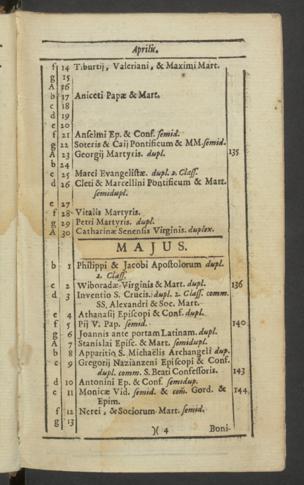 Aprilis.
f 14 Tiburtij, Valeriani, & Maximi Mart.
g 15
A 16
b 17 Aniceti Papæ & Mart.
c 18
d 19
e 20
f 21 Anselmi Ep. & Conf. semid.
g 22 Soteris & Caij Pontificum & MM. semid.
A 23 Georgij Martyris. dupl. 135
b 24
c 25 Marci Evangelistæ. dupl. 2. Class.
d 26 Cleti & Marcellini Pontificum & Mart.
semidupl.
e 27
f 28 Vitalis Martyris.
g 29 Petri Martyris. dupl.
A 30 Catharinæ Senensis Virginis. duplex.
MAJUS.
b 1 Philippi & Jacobi Apostolorum dupl.
2. Class.
c 2 Wiboradæ Virginis & Mart. dupl. 136
d 3 Inventio S. Crucis. dupl. 2. Class. comm.
SS. Alexandri & Soc. Mart.
e 4 Athanasij Episcopi & Conf. dupl.
f 5 Pij V. Pap. semid. 140
g 6 Joannis ante portam Latinam. dupl.
A 7 Stanislai Episc. & Mart. semidupl.
b 8 Apparitio S. Michaëlis Archangeli dup.
c 9 Gregorij Nazianzeni Episcopi & Conf.
dupl. comm. S. Beati Confessoris. 143
d 10 Antonini Ep. & Conf. semidup.
e 11 Monicæ Vid. semid. & com. Gord. & 144
Epim.
f 12 Nerei, & Sociorum Mart. semid.
g 13
)( 4 Boni-